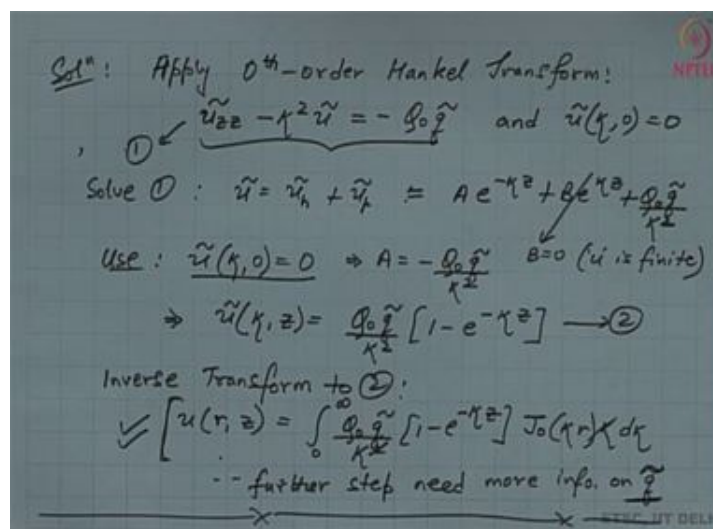 Solⁿ: Apply 0ᵗʰ-order Hankel Transform:
NPTEL
① ũ_zz − κ²ũ = − Q₀q̃ and ũ(κ,0)=0
Solve ①: ũ = ũ_h + ũ_p = A e^{-κz} + B e^{κz} + Q₀q̃/κ²
Use: ũ(κ,0)=0 ⇒ A = − Q₀q̃/κ² B=0 (u is finite)
⇒ ũ(κ,z) = Q₀q̃/κ² [1−e^{-κz}] → ②
Inverse Transform to ②:
[u(r,z) = ∫₀^∞ Q₀q̃/κ² [1−e^{-κz}] J₀(κr) κ dκ
-- further step need more info. on q̃